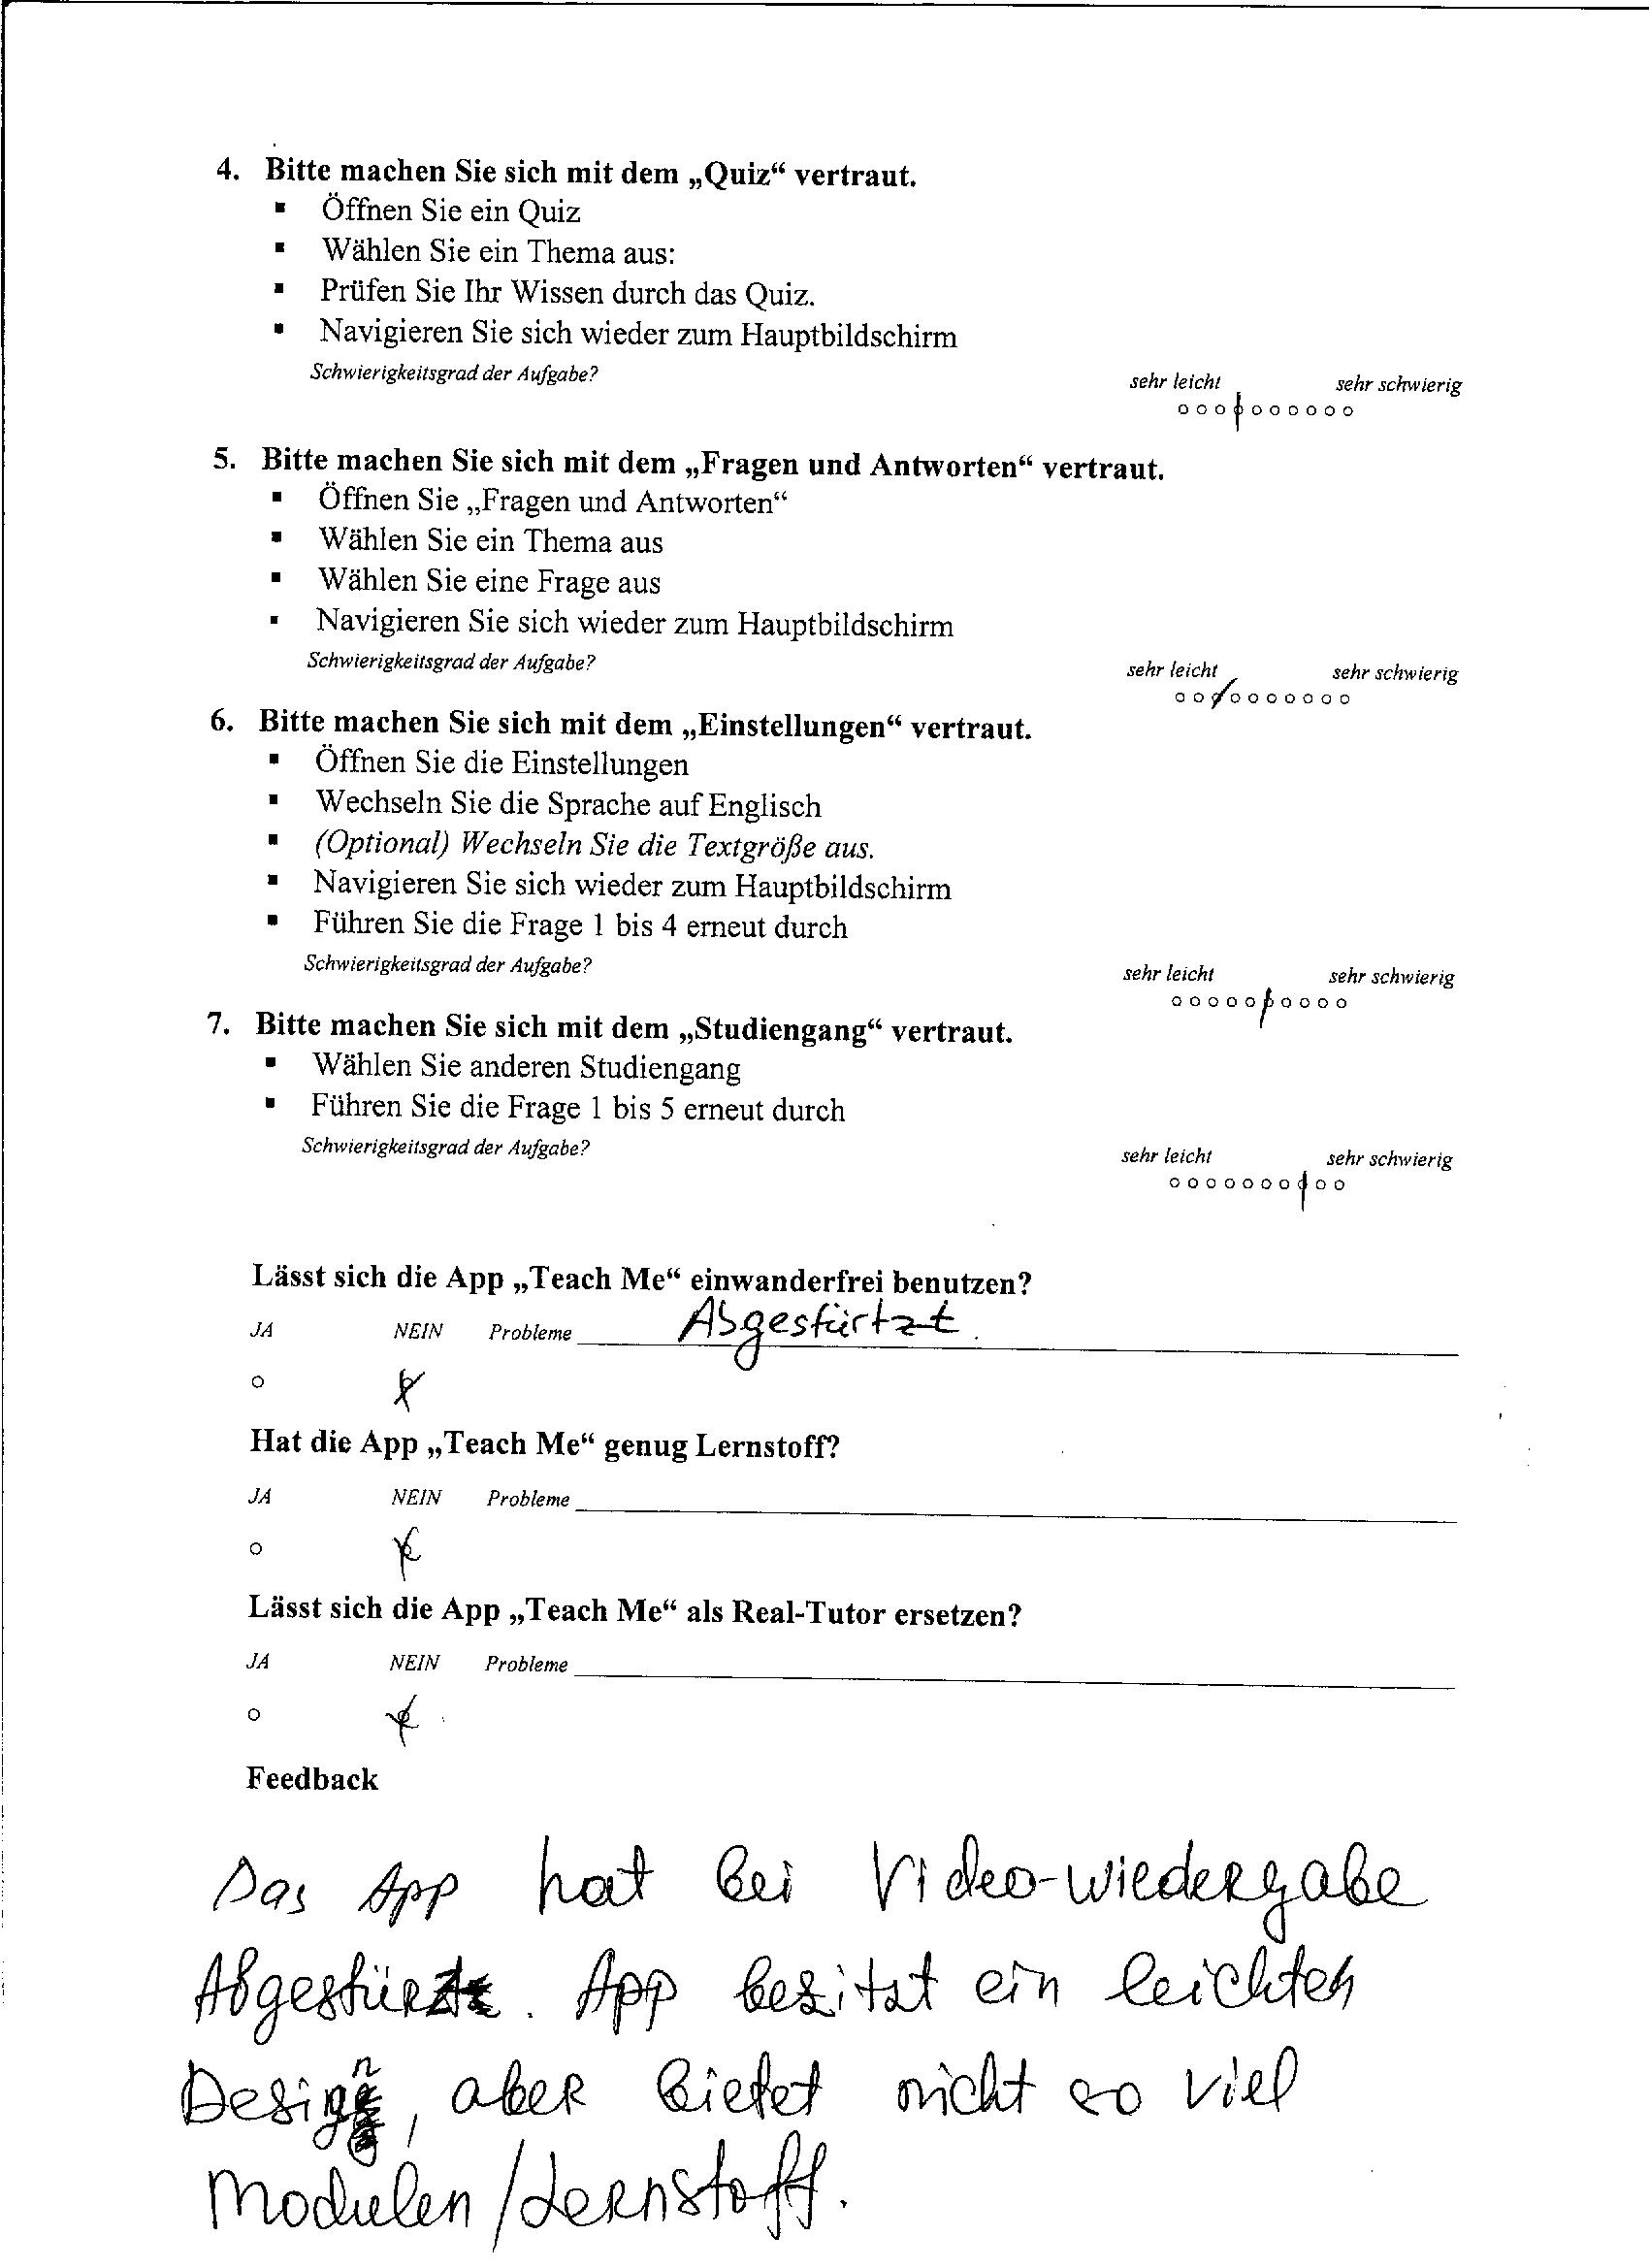 4. Bitte machen Sie sich mit dem „Quiz“ vertraut.
▪ Öffnen Sie ein Quiz
▪ Wählen Sie ein Thema aus:
▪ Prüfen Sie Ihr Wissen durch das Quiz.
▪ Navigieren Sie sich wieder zum Hauptbildschirm
Schwierigkeitsgrad der Aufgabe?
sehr leicht sehr schwierig
5. Bitte machen Sie sich mit dem „Fragen und Antworten“ vertraut.
▪ Öffnen Sie „Fragen und Antworten“
▪ Wählen Sie ein Thema aus
▪ Wählen Sie eine Frage aus
▪ Navigieren Sie sich wieder zum Hauptbildschirm
Schwierigkeitsgrad der Aufgabe?
sehr leicht sehr schwierig
6. Bitte machen Sie sich mit dem „Einstellungen“ vertraut.
▪ Öffnen Sie die Einstellungen
▪ Wechseln Sie die Sprache auf Englisch
▪ (Optional) Wechseln Sie die Textgröße aus.
▪ Navigieren Sie sich wieder zum Hauptbildschirm
▪ Führen Sie die Frage 1 bis 4 erneut durch
Schwierigkeitsgrad der Aufgabe?
sehr leicht sehr schwierig
7. Bitte machen Sie sich mit dem „Studiengang“ vertraut.
▪ Wählen Sie anderen Studiengang
▪ Führen Sie die Frage 1 bis 5 erneut durch
Schwierigkeitsgrad der Aufgabe?
sehr leicht sehr schwierig
Lässt sich die App „Teach Me“ einwanderfrei benutzen?
JA NEIN Probleme Abgestürtzt.
Hat die App „Teach Me“ genug Lernstoff?
JA NEIN Probleme
Lässt sich die App „Teach Me“ als Real-Tutor ersetzen?
JA NEIN Probleme
Feedback
Das App hat bei Video-wiedergabe
Abgestürzt. App besitzt ein leichtes
Desing, aber bietet nicht so viel
Modulen/Lernstoff.